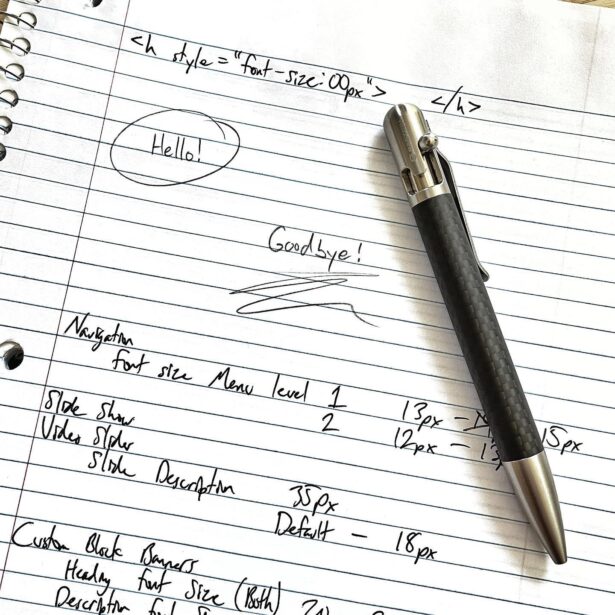 <h style="font-size:00px"> </h>
Hello!
Goodbye!
Navigation
font size Menu level 1 13px - 15px
2 12px - 13
Slide Show
Video Slider
Slide Description 35px
Default - 18px
Custom Block Banners
Heading font size (Both)
Description font